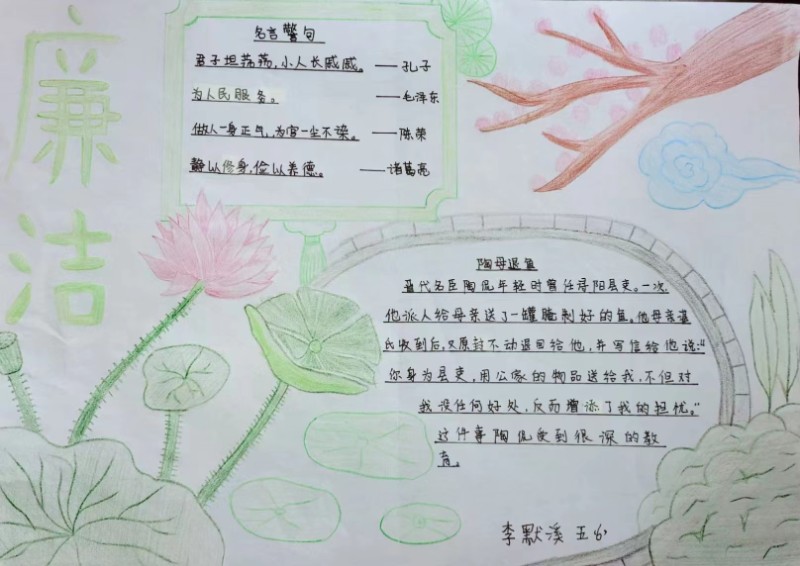 廉洁
名言警句
君子坦荡荡,小人长戚戚。——孔子
为人民服务。——毛泽东
做人一身正气,为官一尘不染。——陈荣
静以修身,俭以养德。——诸葛亮
陶母退鱼
晋代名臣陶侃年轻时曾任浔阳县吏。一次
他派人给母亲送了一罐腌制好的鱼。他母亲湛
氏收到后,又原封不动退回给他,并写信给他说:“
你身为县吏,用公家的物品送给我,不但对
我没任何好处,反而增添了我的担忧。”
这件事陶侃受到很深的教
育。
李默溪 五6